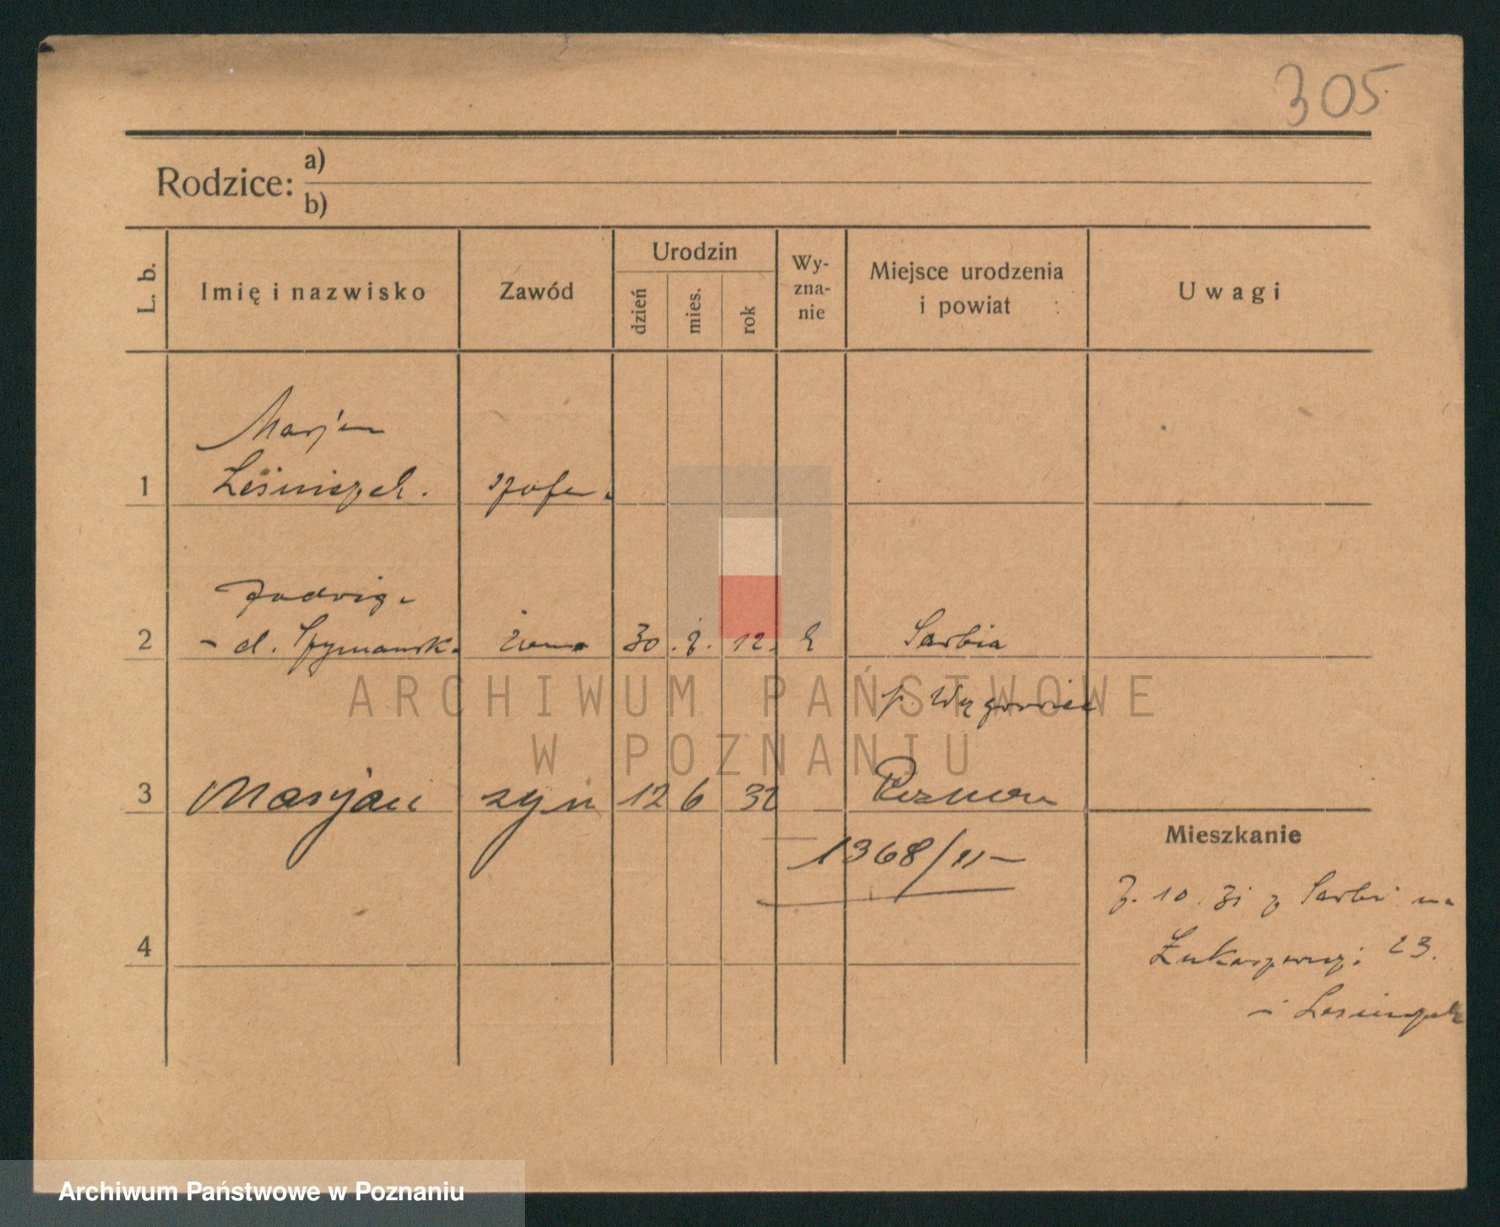 305
Rodzice: a)
b)
L. b.
Imię i nazwisko
Zawód
Urodzin
dzień
mies.
rok
Wy-
zna-
nie
Miejsce urodzenia
i powiat
Uwagi
Marjan
1 Leśniczak. szofer
Jadwiga
2 d. Szymańska żona 30. 12. Sarbia
p. Wągrowiec
3 Marjan syn 12 6 32 Poznań
1368/
Mieszkanie
10. 31 z Sarbi na
4
Łukaszewicz. 23.
ARCHIWUM PAŃSTWOWE
W POZNANIU
Archiwum Państwowe w Poznaniu